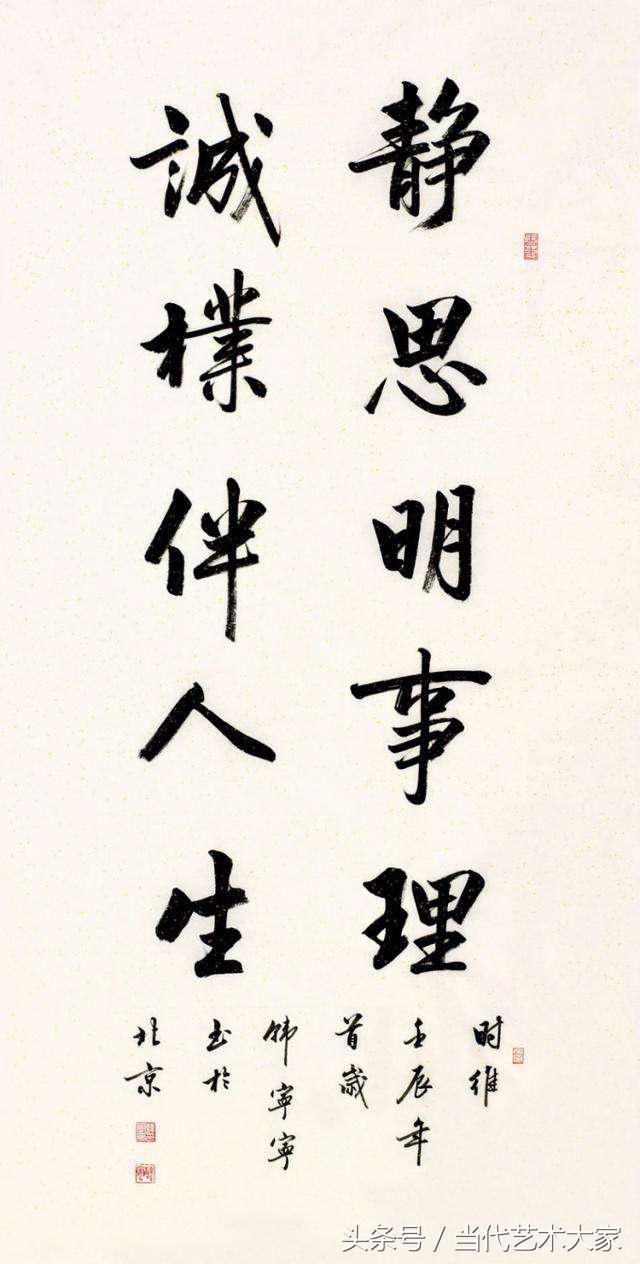 静思明事理
誠樸伴人生
时维
壬辰年
首歲
韩寧寧
书於
北京
头条号 / 当代艺术大家